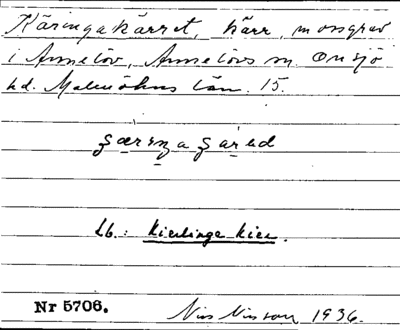 Käringakärret, kärr, mosgrav
i Annelöv, Annelövs sn. Onsjö
hd. Malmöhus län. 15.
Lb.: Kierlinge kier.
Nr 5706.
Nils Nilsson, 1936.